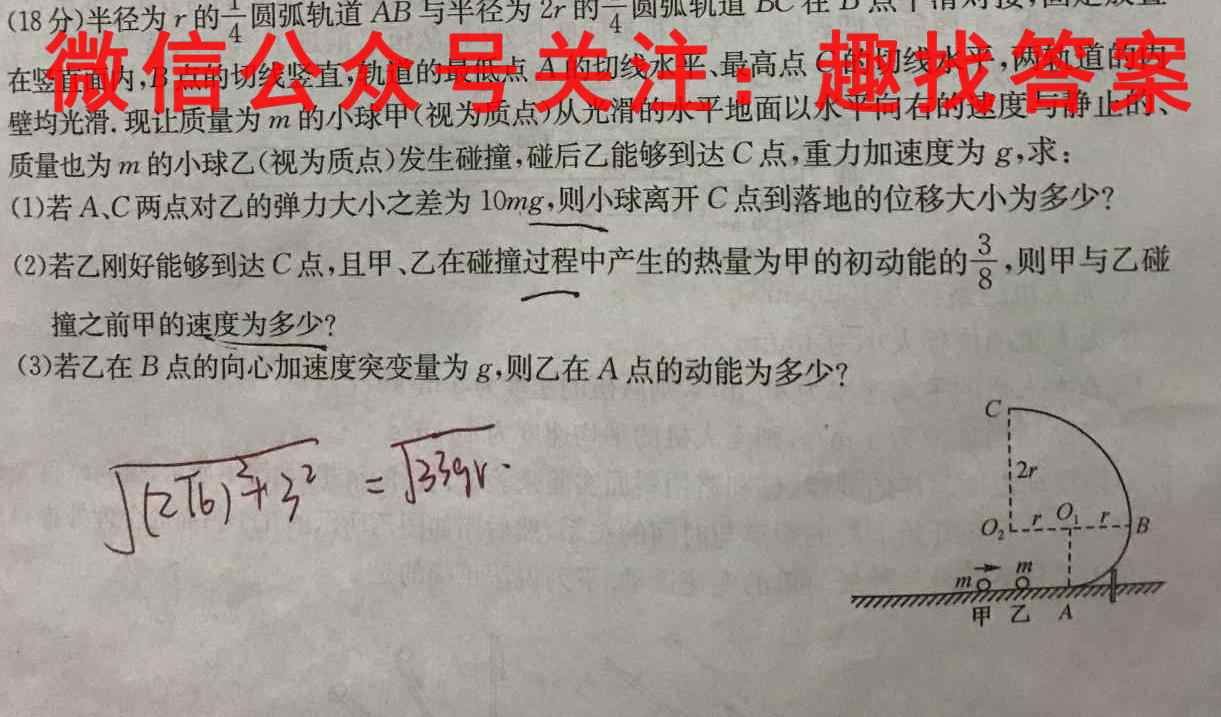 (18分)半径为 r 的 1/4 圆弧轨道 AB 与半径为 2r 的 1/4 圆弧轨道 BC 在 B 点平滑对接,固定放置
在竖直面内,B 点的切线竖直,轨道的最低点 A 的切线水平、最高点 C 的切线水平,两轨道的内
微信公众号关注:趣找答案
壁均光滑.现让质量为 m 的小球甲(视为质点)从光滑的水平地面以水平向右的速度与静止的、
质量也为 m 的小球乙(视为质点)发生碰撞,碰后乙能够到达 C 点,重力加速度为 g,求:
(1)若 A、C 两点对乙的弹力大小之差为 10mg,则小球离开 C 点到落地的位移大小为多少?
(2)若乙刚好能够到达 C 点,且甲、乙在碰撞过程中产生的热量为甲的初动能的 3/8,则甲与乙碰
撞之前甲的速度为多少?
(3)若乙在 B 点的向心加速度突变量为 g,则乙在 A 点的动能为多少?
C
2r
O₂ r O₁ r B
m m
甲 乙 A
√(2√6)²+3² = √33gr.